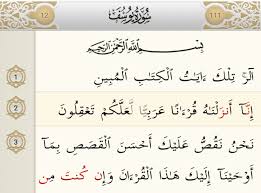 111 سُورَةُ يُوسُف 12
بِسْمِ ٱللَّهِ ٱلرَّحْمَٰنِ ٱلرَّحِيمِ
الٓر ۚ تِلْكَ ءَايَٰتُ ٱلْكِتَٰبِ ٱلْمُبِينِ 1
إِنَّآ أَنزَلْنَٰهُ قُرْءَٰنًا عَرَبِيًّا لَّعَلَّكُمْ تَعْقِلُونَ 2
نَحْنُ نَقُصُّ عَلَيْكَ أَحْسَنَ ٱلْقَصَصِ بِمَآ 3
أَوْحَيْنَآ إِلَيْكَ هَٰذَا ٱلْقُرْءَانَ وَإِن كُنتَ مِن